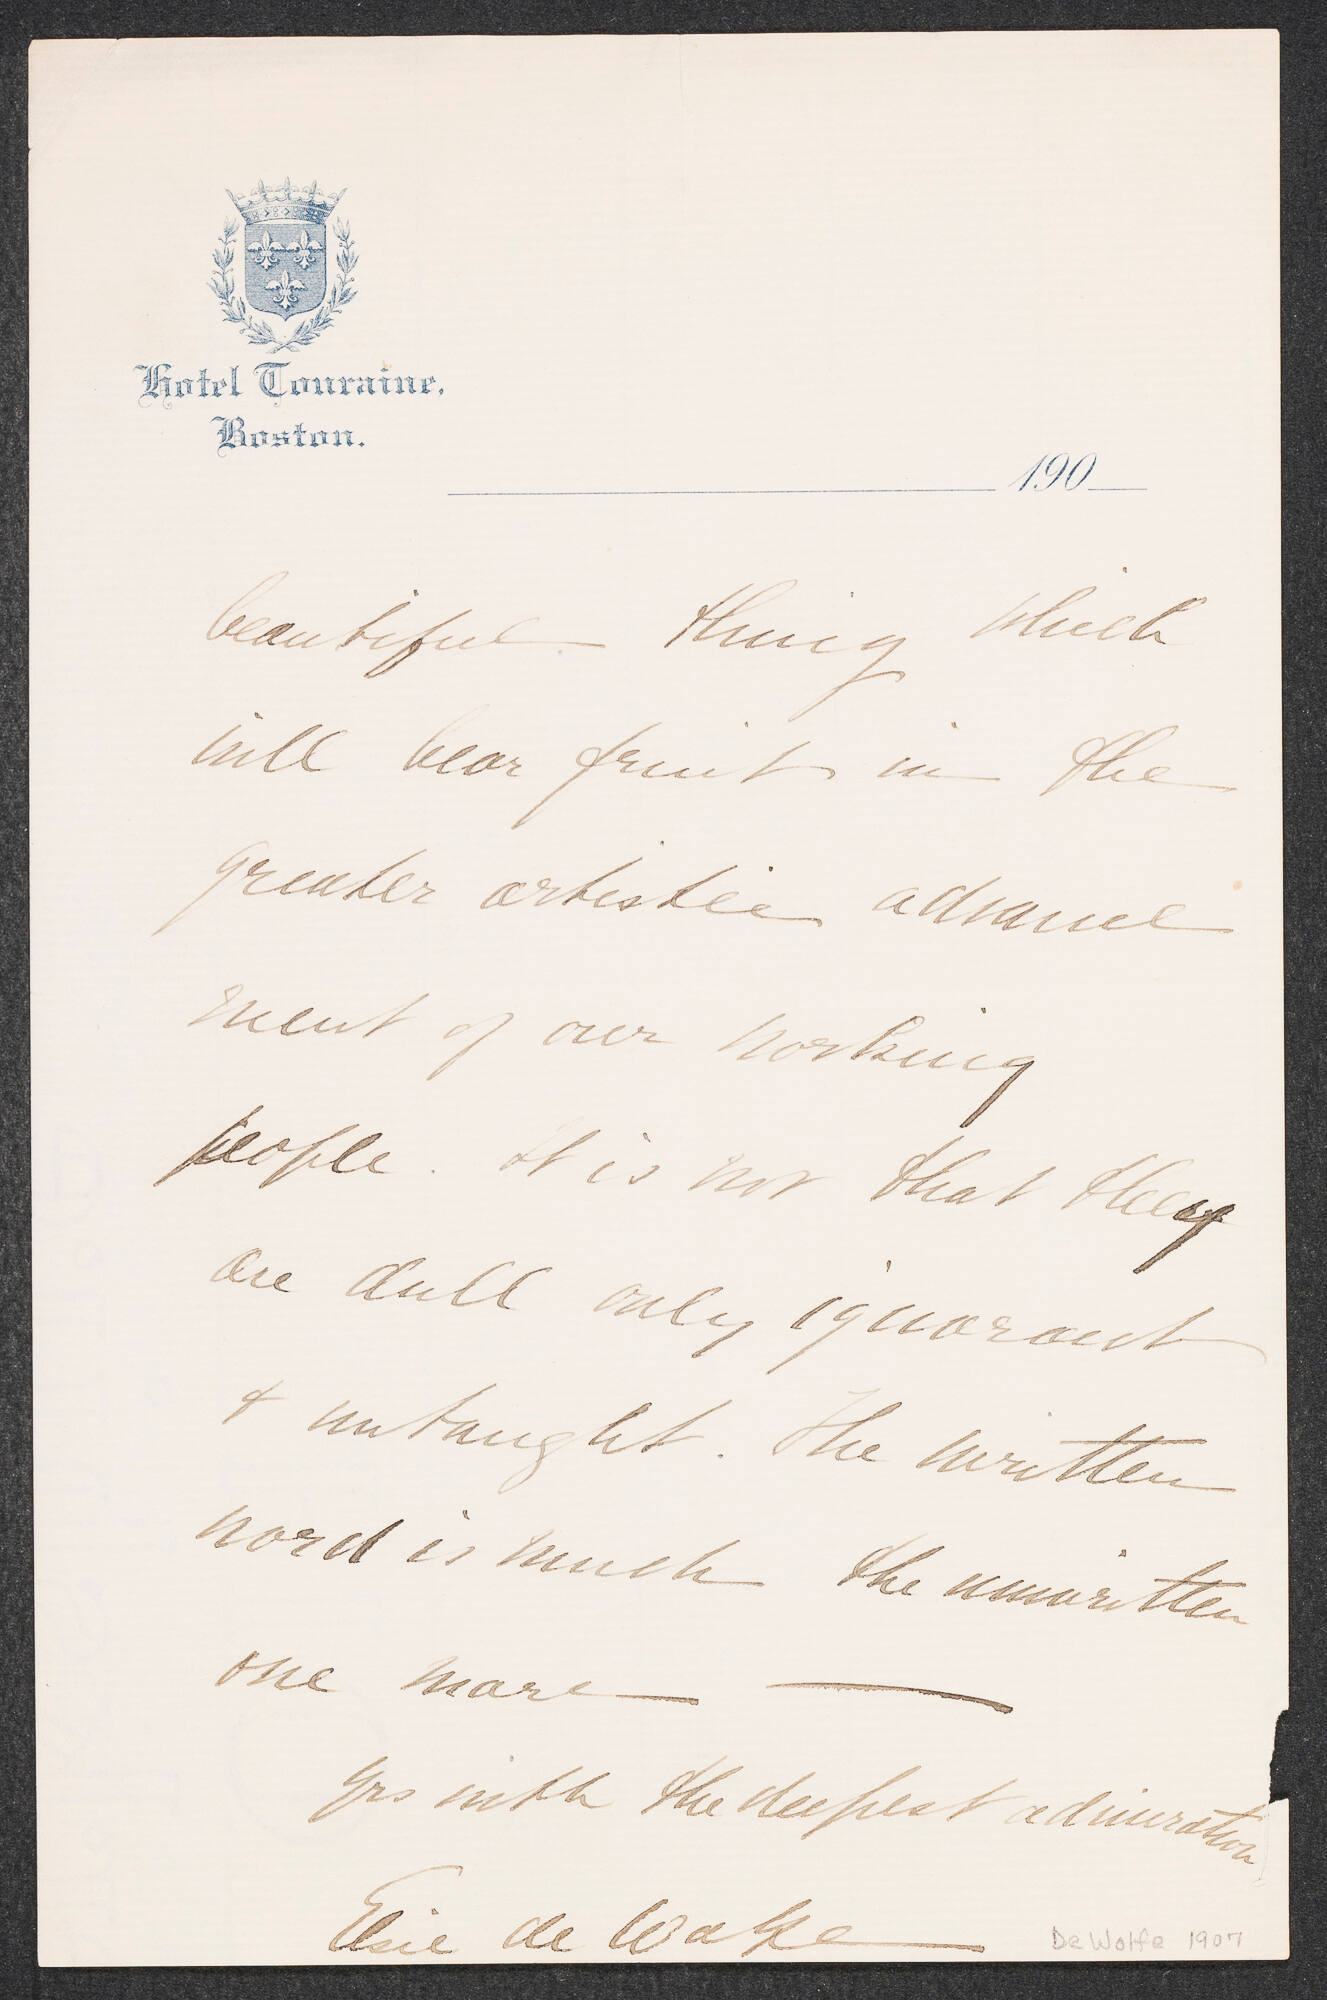 Hotel Touraine,
Boston.
190
beautiful thing which
will bear fruit in the
greater artistic advance
ment of our working
people. It is not that they
are dull only ignorant
& untaught. The written
word is much the unwritten
one more —
Yrs with the deepest admiration
Elsie de Wolfe
De Wolfe 1907